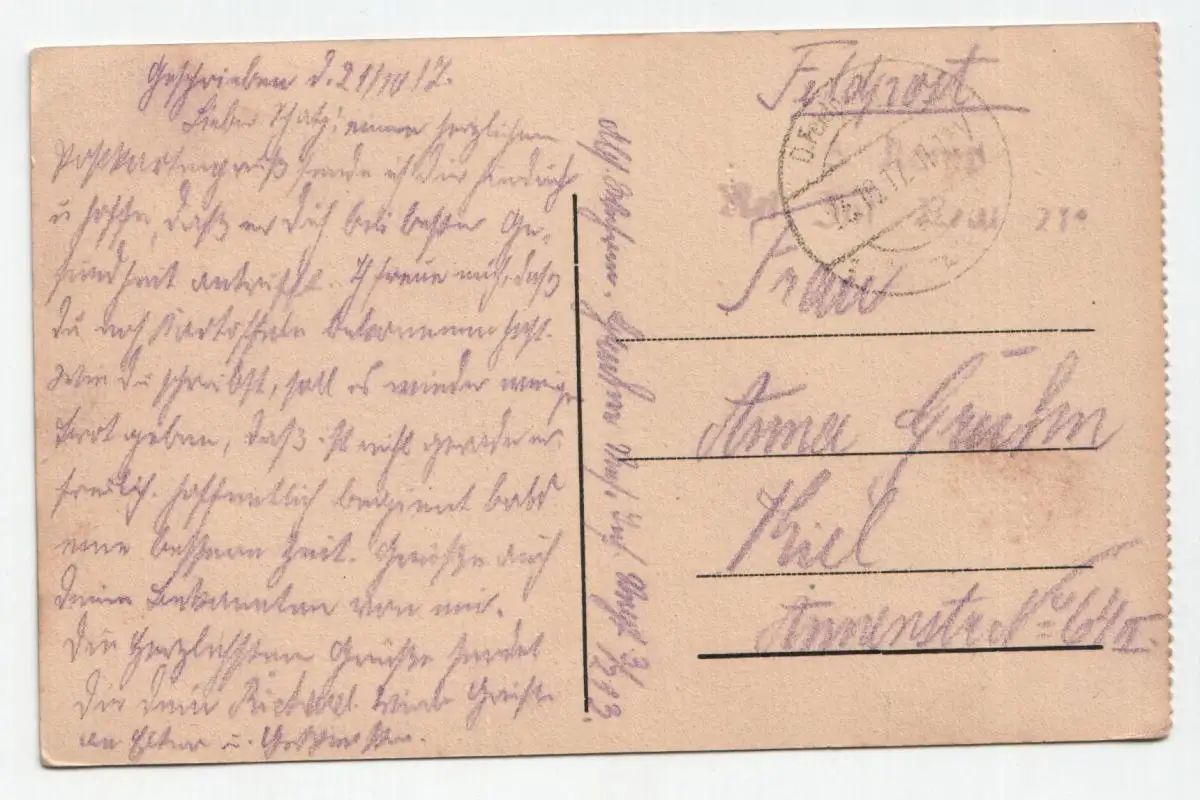 Geschrieben d. 21/10 17.
Lieber Schatz! einen herzlichen
Postkartengruß sende ich Dir hierdurch
u hoffe, daß er Dich bei bester Ge-
sundheit antrifft. Ich freue mich, daß
Du noch Kartoffeln bekommen hast.
Wie Du schreibst, soll es wieder weniger
Brot geben, daß ist nicht gerade er-
freulich. Hoffentlich beginnt bald
eine bessere Zeit. Grüße auch
Deine Bekannten von mir.
Die Herzlichsten Grüße sendet
Dir Dein Viele Grüße
an Eltern u. Geschwister.
Abs.
Feldpost
Frau
Anna Grühn
Kiel
Annenstr No 64a.